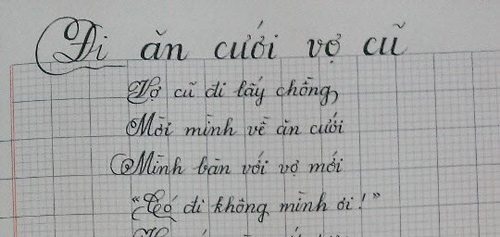 Đi ăn cưới vợ cũ
Vợ cũ đi lấy chồng,
Mời mình về ăn cưới
Mình bàn với vợ mới
"Có đi không mình ơi!"